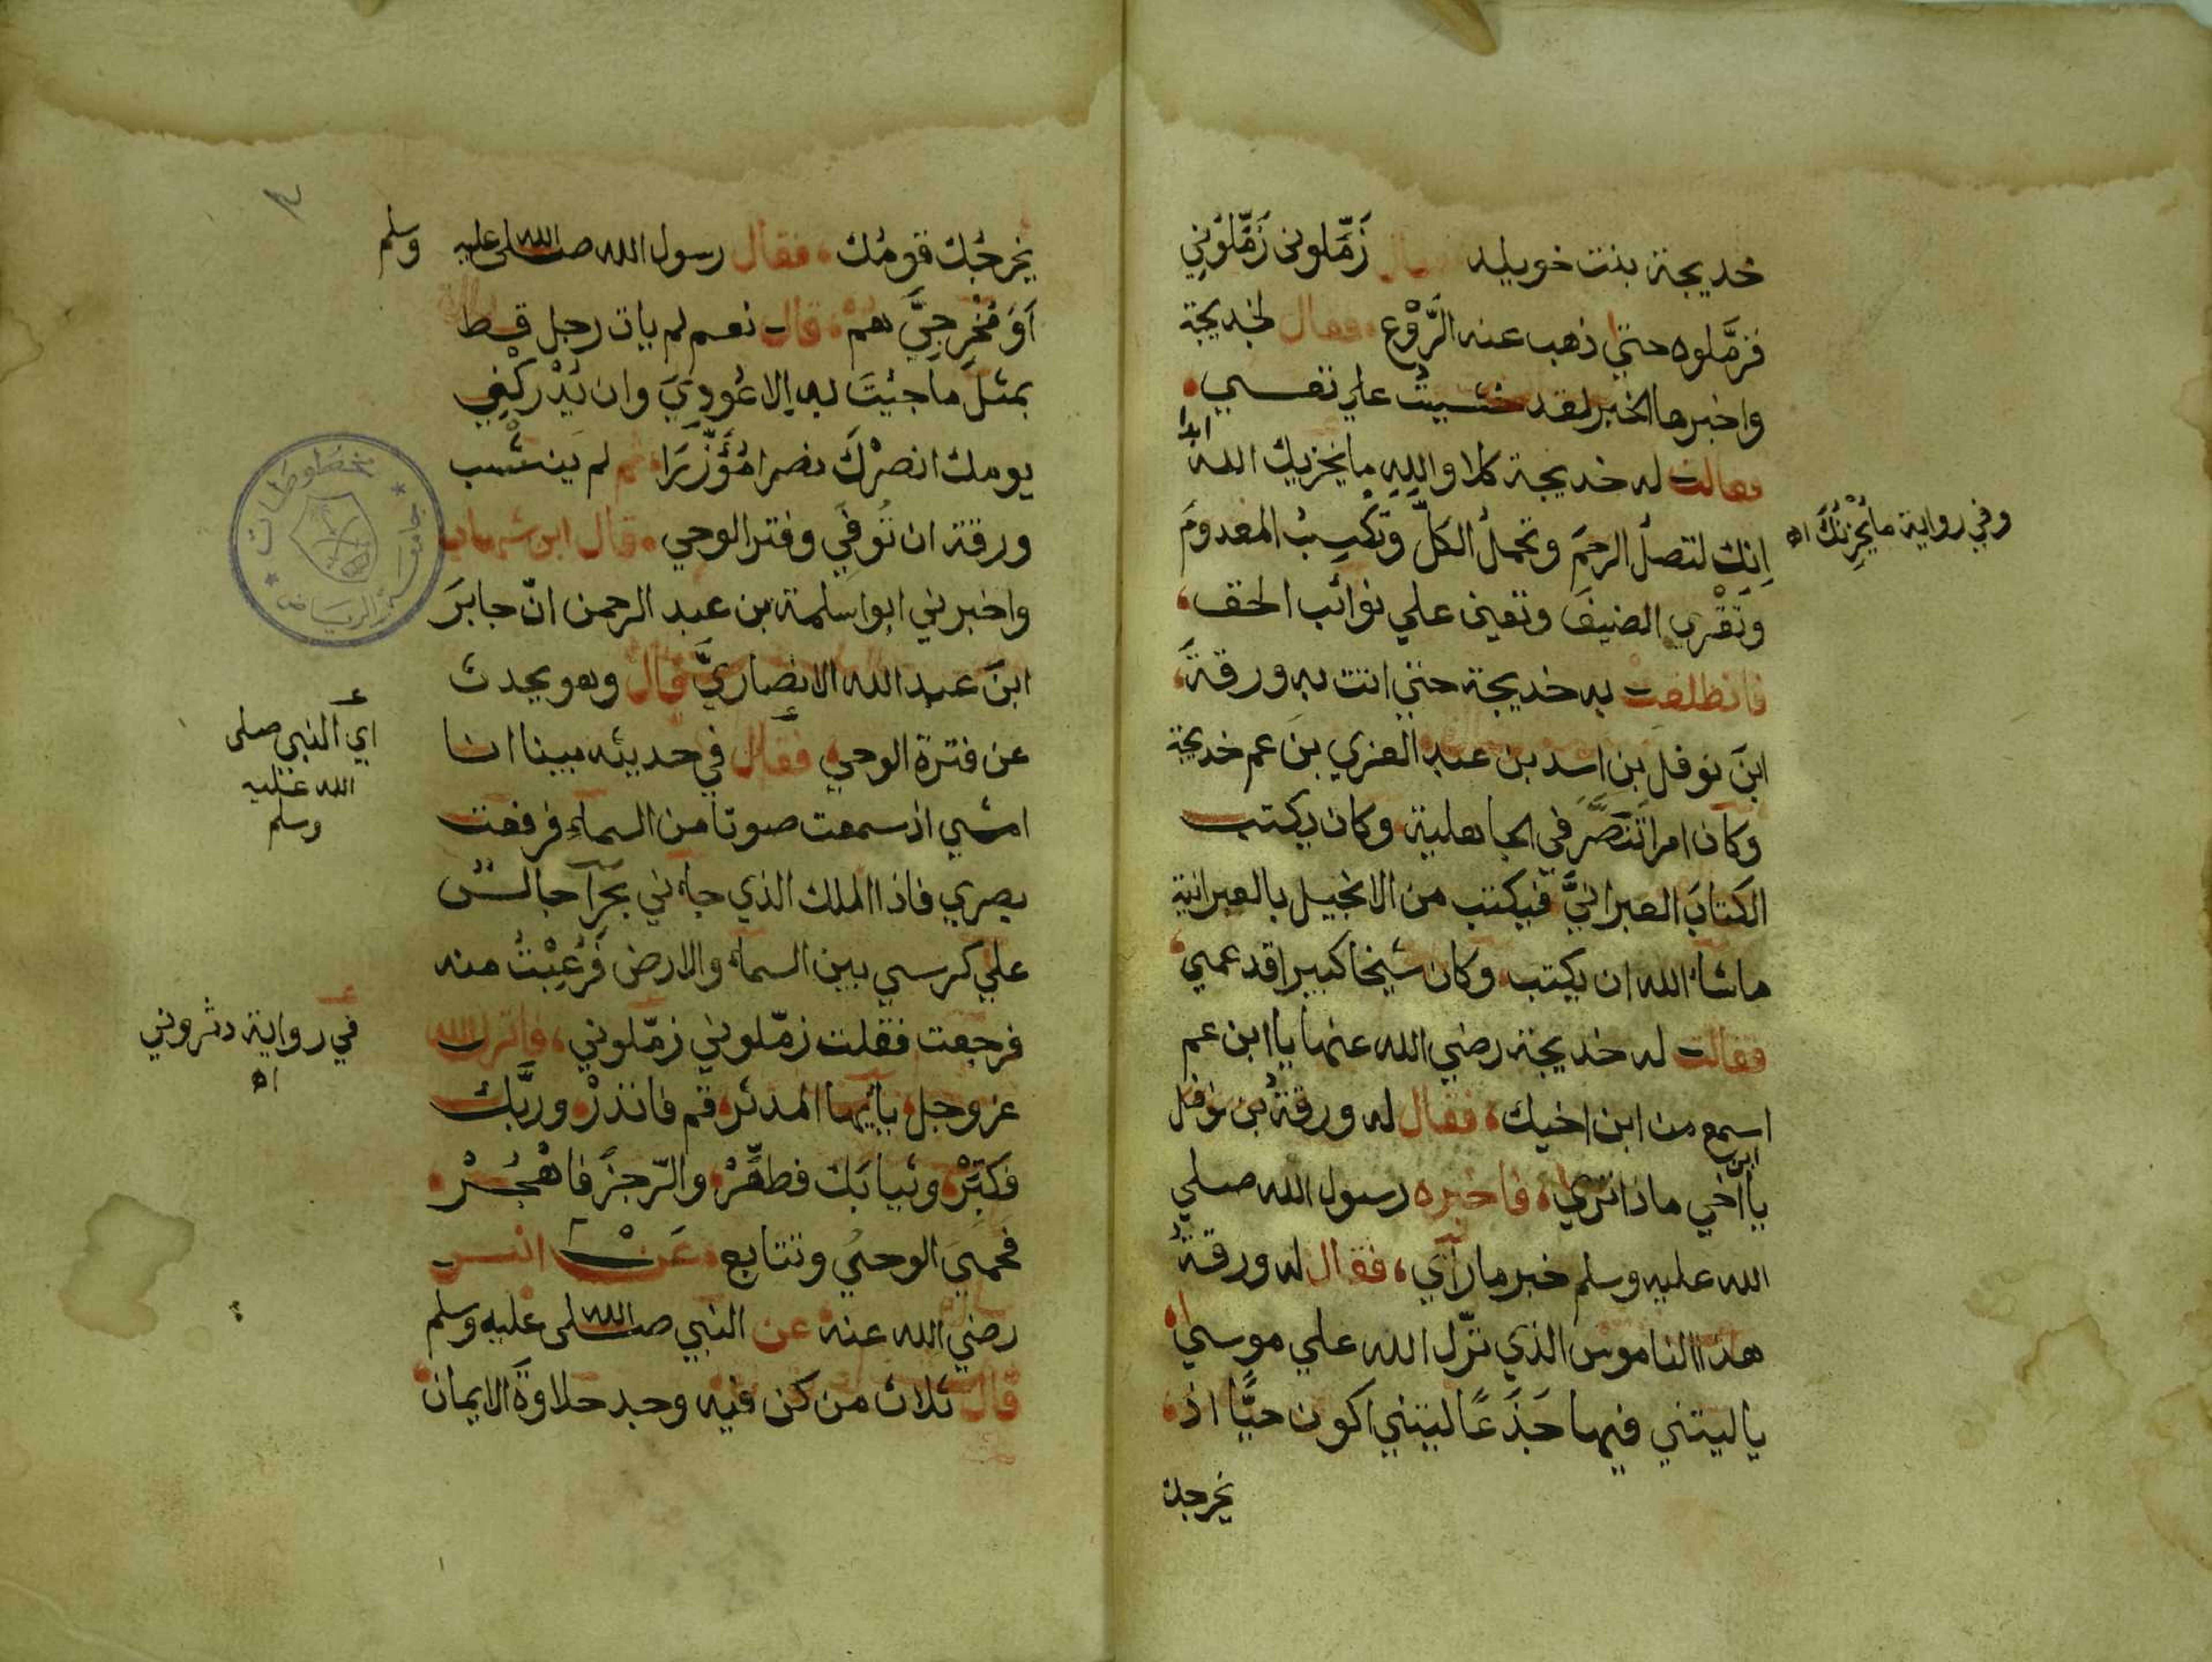 خديجة بنت خويلد قال زَمِّلوني زَمِّلُوني
فزمَّلوه حتي ذهب عنه الرَّوْع فقال لخديجة
واخبرها الخبر لقد خشيت علي نفسي
فقالت له خديجة كلا والله ما يخزيك الله ابدا
وفي رواية ما يُحْزِنُكَ اه
اِنك لتصلُ الرحمَ وتحملُ الكلَّ وتَكْسِبُ المعدومَ
وتَقْري الضيفَ وتعين علي نوائب الحق
فانطلقتْ به خديجة حتي اتت به ورقةَ
ابنَ نوفل بن اسد بن عبد العزي بنَ عم خديجة
وكان امرا تَنَصَّرَ في الجاهلية وكان يكتب
الكتابَ العبرانيَّ فيكتب من الانجيل بالعبرانية
ماشاء الله ان يكتب وكان شيخا كبيرا قد عمي
فقالت له خديجة رضي الله عنها يا ابن عم
اسمع من ابن اخيك فقال له ورقةُ بن نوفل
يا ابن اخي ماذا تري فاخبره رسول الله صلي
الله عليه وسلم خبر ما رآي فقال له ورقةُ
هذا الناموس الذي نزّل الله علي موسي
ياليتني فيها جَذَعًا ليتني اكون حيًّا اذ
يخرجك
يخرجُك قومُك فقال رسول الله صلى الله عليه وسلم
اَوَ مُخْرِجِيَّ هم قال نعم لم يات رجل قط
بمثل ما جئيتَ به إلا عُودِيَ وان يُدْركْني
يومك انصرْكَ نصرا مُؤَزَّرَا ثم لم ينشب
ورقة ان تُوفي وفتر الوحي قال ابن شهاب
واخبرني ابوا سلمة بن عبد الرحمن انّ جابرَ
ابنَ عبد الله الانصاريَّ قال وهو يحدث
عن فترة الوحي فقال في حديثه بينا انا
اي النبي صلى
الله عليه
وسلم
امشي اذ سمعت صوتا من السماءِ فرفعت
بصري فاذا الملك الذي جاءني بحرآ جالسٌ
علي كرسي بين السماء والارض فَرُعِبْتُ منه
فرجعت فقلت زمّلوني زمّلوني فانزل الله
في رواية دثروني
اه
عز وجل ياأيها المدثر قم فانذرْ وربَّك
فكبِّرْ وثيابَك فطهِّرْ والرّجزَ فاهْجُرْ
فحميَ الوحيُ وتتابع عَنْ انس
رضي الله عنه عن النبي صلى الله عليه وسلم
قال ثلاث من كن فيه وجد حلاوةَ الايمان
مخطوطات
جامعة الرياض